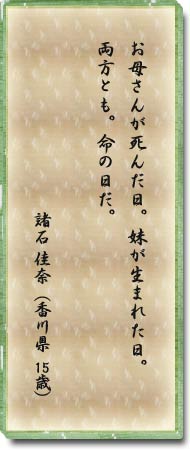 お母さんが死んだ日。妹が生まれた日。
両方とも。命の日だ。
諸石 佳奈（香川県 15歳）